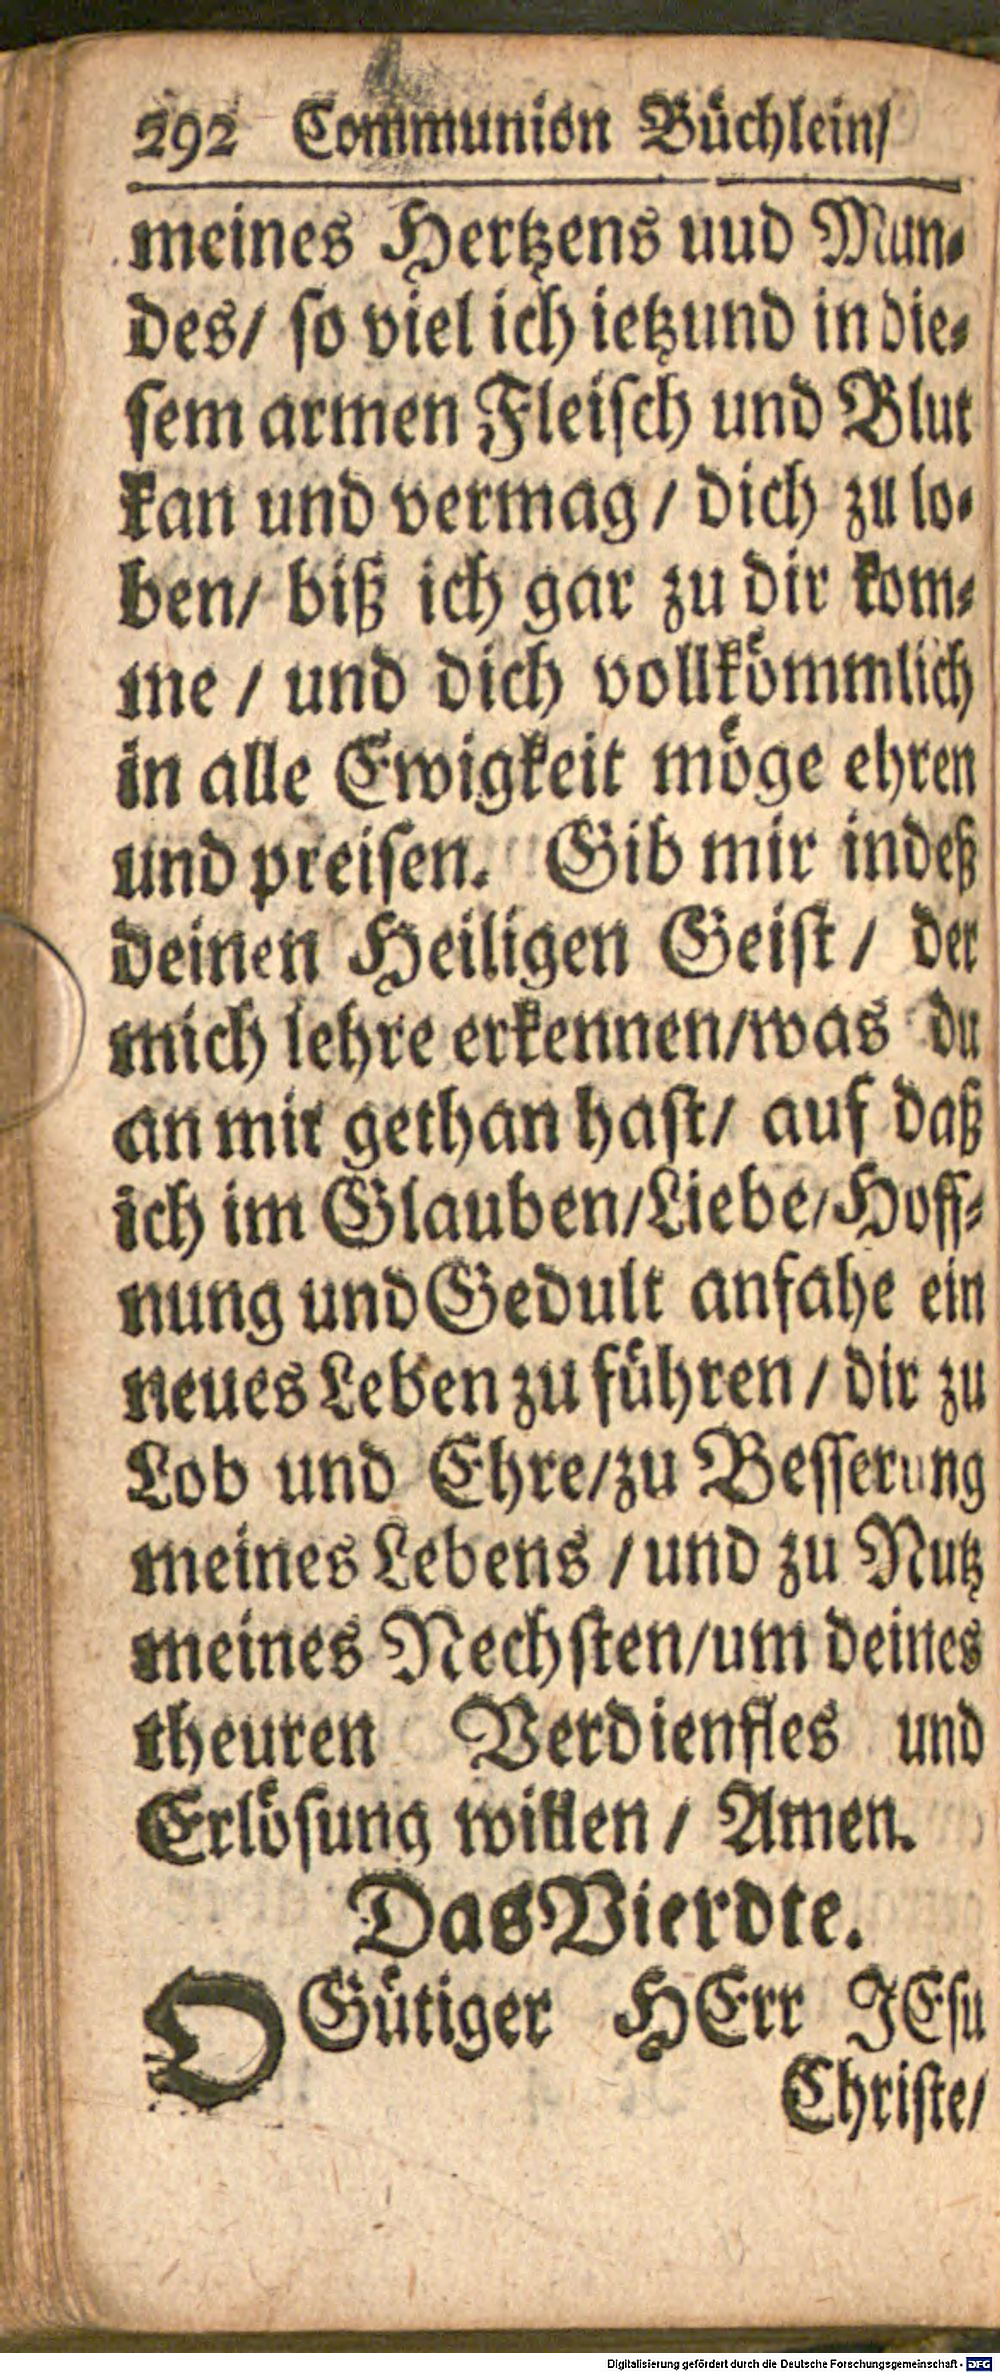 292 Communion Büchlein/
meines Hertzens uud Mun-
des/ so viel ich ietzund in die-
sem armen Fleisch und Blut
kan und vermag / dich zu lo-
ben/ biß ich gar zu dir kom-
me / und dich vollkömmlich
in alle Ewigkeit möge ehren
und preisen. Gib mir indeß
deinen Heiligen Geist / der
mich lehre erkennen/was du
an mir gethan hast/ auf daß
ich im Glauben/Liebe/Hoff-
nung und Gedult anfahe ein
neues Leben zu führen / dir zu
Lob und Ehre/zu Besserung
meines Lebens / und zu Nutz
meines Nechsten/um deines
theuren Verdienstes und
Erlösung willen / Amen.
Das Vierdte.
O Gütiger HErr JEsu
Christe/
Digitalisierung gefördert durch die Deutsche Forschungsgemeinschaft - DFG